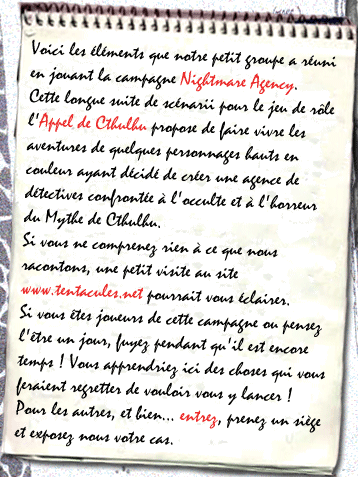 Voici les éléments que notre petit groupe a réuni
en jouant la campagne Nightmare Agency.
Cette longue suite de scénarii pour le jeu de rôle
l'Appel de Cthulhu propose de faire vivre les
aventures de quelques personnages hauts en
couleur ayant décidé de créer une agence de
détectives confrontée à l'occulte et à l'horreur
du Mythe de Cthulhu.
Si vous ne comprenez rien à ce que nous
racontons, une petit visite au site
www.tentacules.net pourrait vous éclairer.
Si vous êtes joueurs de cette campagne ou pensez
l'être un jour, fuyez pendant qu'il est encore
temps ! Vous apprendriez ici des choses qui vous
feraient regretter de vouloir vous y lancer !
Pour les autres, et bien... entrez, prenez un siège
et exposez nous votre cas.